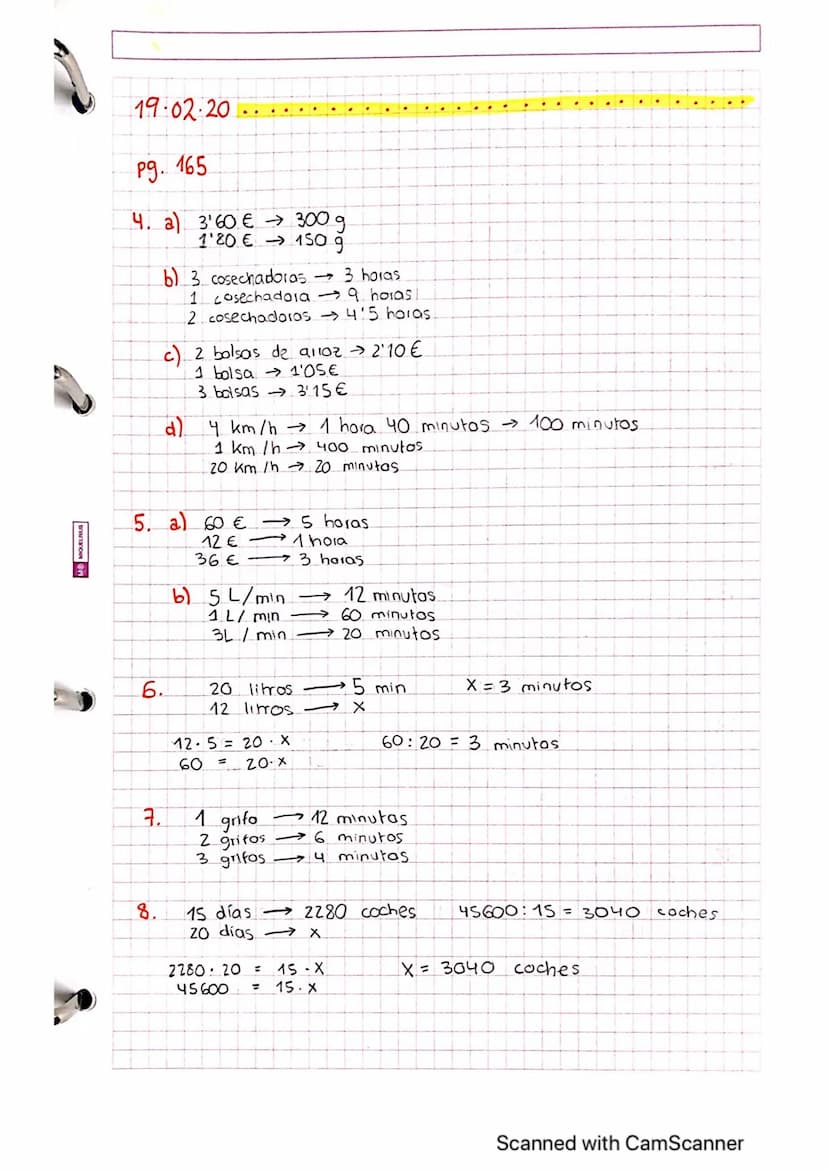 19·02·20
pg. 165
4. a) 3'60 € → 300 g
1'20 € → 150 g
b) 3 cosechadoras → 3 horas
1 cosechadora → 9 horas
2 cosechadoras → 4'5 horas
c) 2 bolsas de arroz → 2'10 €
1 bolsa → 1'05 €
3 bolsas → 3'15 €
d) 4 km/h → 1 hora 40 minutos → 100 minutos
1 km/h → 400 minutos
20 km/h → 20 minutos
5. a) 60 € → 5 horas
12 € → 1 hora
36 € → 3 horas
b) 5 L/min → 12 minutos
1 L/min → 60 minutos
3L/min → 20 minutos
MIQUELRIUS
6. 20 litros → 5 min x = 3 minutos
12 litros → x
12·5 = 20·x 60:20 = 3 minutos
60 = 20·x
7. 1 grifo → 12 minutos
2 grifos → 6 minutos
3 grifos → 4 minutos
8. 15 días → 2280 coches 45600:15 = 3040 coches
20 días → x
2280·20 = 15·x x = 3040 coches
45600 = 15·x
Scanned with CamScanner